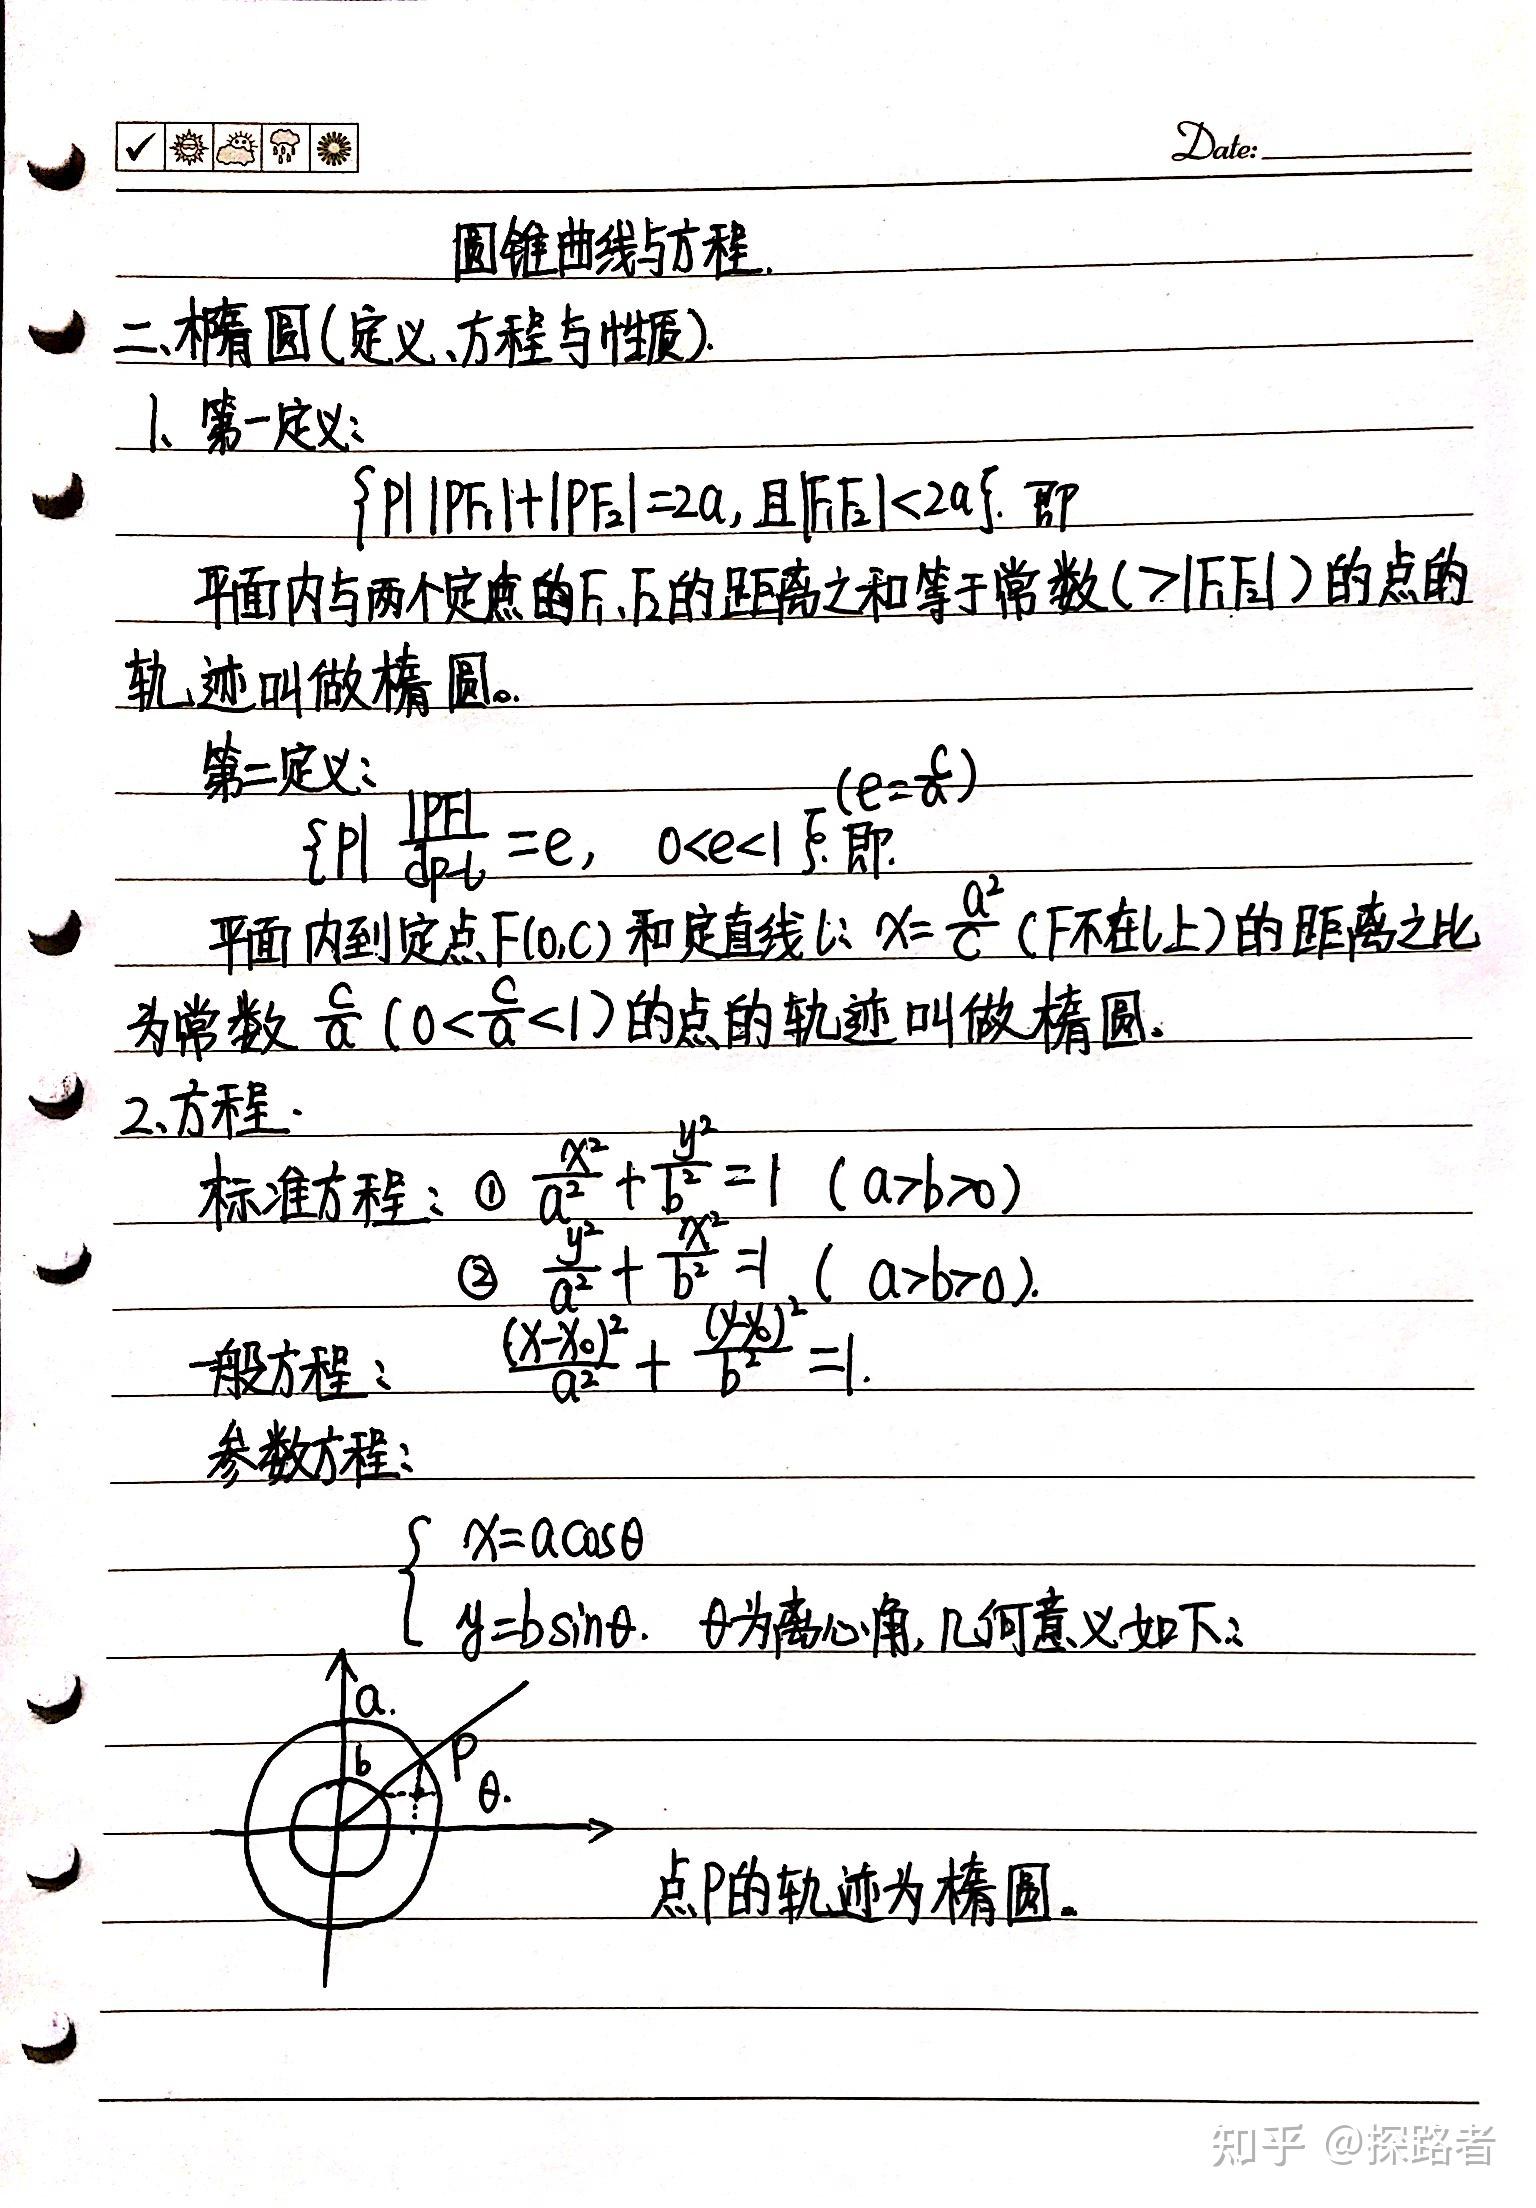 Date:
圆锥曲线与方程.
二、椭圆(定义、方程与性质).
1、第一定义:
{P| |PF₁|+|PF₂|=2a, 且|F₁F₂|<2a}. 即
平面内与两个定点的F₁、F₂的距离之和等于常数(>|F₁F₂|)的点的
轨迹叫做椭圆。
第二定义:
(e=c/a)
{P| |PF|/d_{P-l} =e, 0<e<1}. 即.
平面内到定点F(0,C)和定直线l: x=a²/c (F不在l上)的距离之比
为常数 c/a (0<c/a<1)的点的轨迹叫做椭圆。
2、方程.
标准方程: ① x²/a² + y²/b² =1 (a>b>0)
② y²/a² + x²/b² =1 (a>b>0).
一般方程: (x-x₀)²/a² + (y-y₀)²/b² =1.
参数方程:
{ x=acosθ
y=bsinθ. θ为离心角, 几何意义如下:
a.
b
P
θ.
点P的轨迹为椭圆。
知乎 @探路者